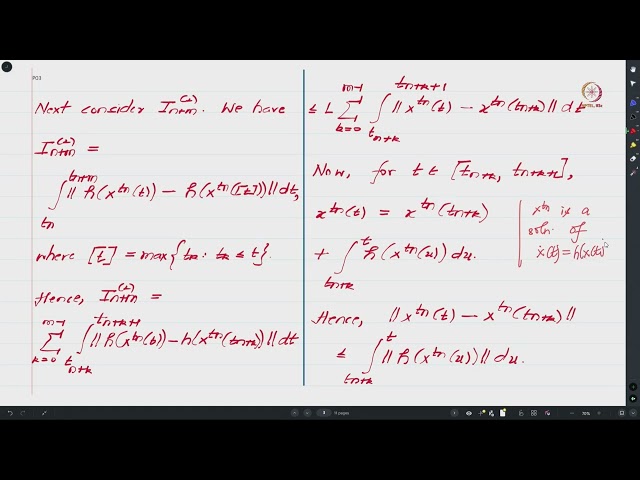 PG3
Next consider I_{n+m}^{(2)}. We have
I_{n+m}^{(2)} =
∫_{t_n}^{t_{n+m}} || h(x^{t_n}(t)) - h(x^{t_n}([t])) || dt,
where [t] = max{t_k : t_k ≤ t}.
Hence, I_{n+m}^{(2)} =
∑_{k=0}^{m-1} ∫_{t_{n+k}}^{t_{n+k+1}} || h(x^{t_n}(t)) - h(x^{t_n}(t_{n+k})) || dt
≤ L ∑_{k=0}^{m-1} ∫_{t_{n+k}}^{t_{n+k+1}} || x^{t_n}(t) - x^{t_n}(t_{n+k}) || dt
Now, for t ∈ [t_{n+k}, t_{n+k+1}],
x^{t_n}(t) = x^{t_n}(t_{n+k})
+ ∫_{t_{n+k}}^{t} h(x^{t_n}(u)) du.
x^{t_n} is a
soln. of
ẋ(t) = h(x(t))
Hence, || x^{t_n}(t) - x^{t_n}(t_{n+k}) ||
≤ ∫_{t_{n+k}}^{t} || h(x^{t_n}(u)) || du.
1
11 pages
70%